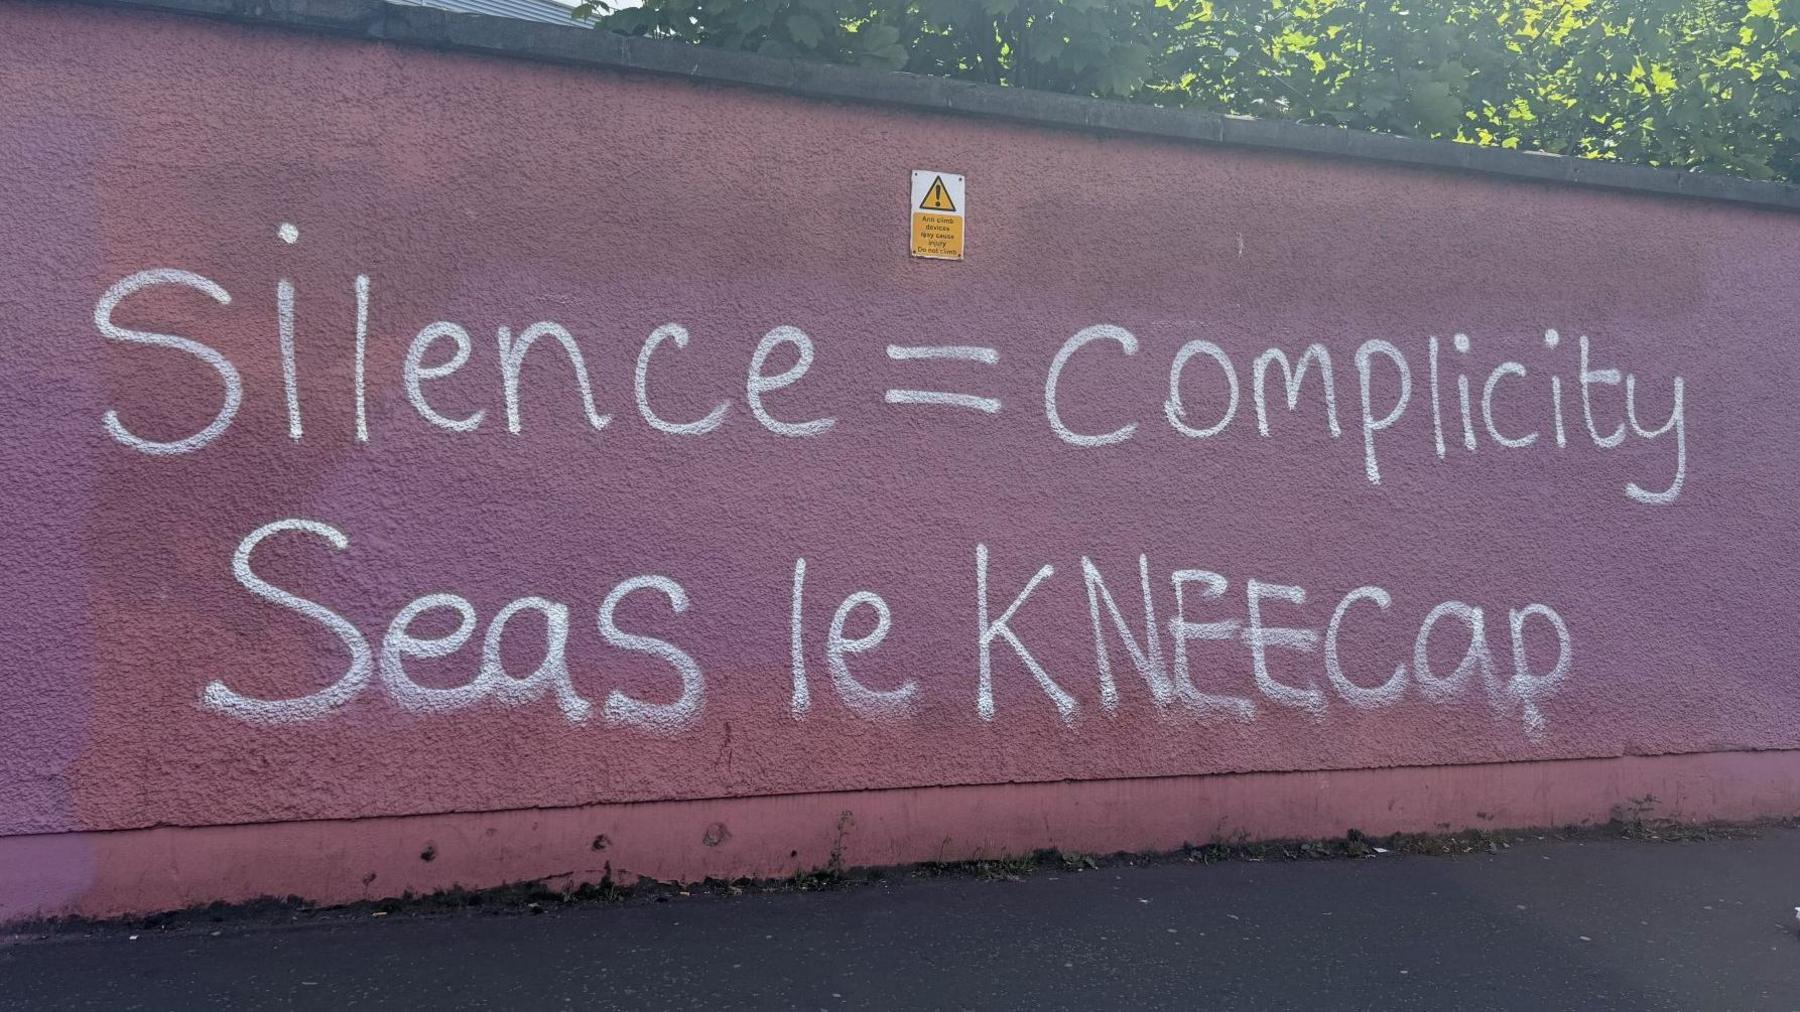 Anti climb
devices
may cause
injury
Do not climb
Silence = Complicity
Seas le KNEECap